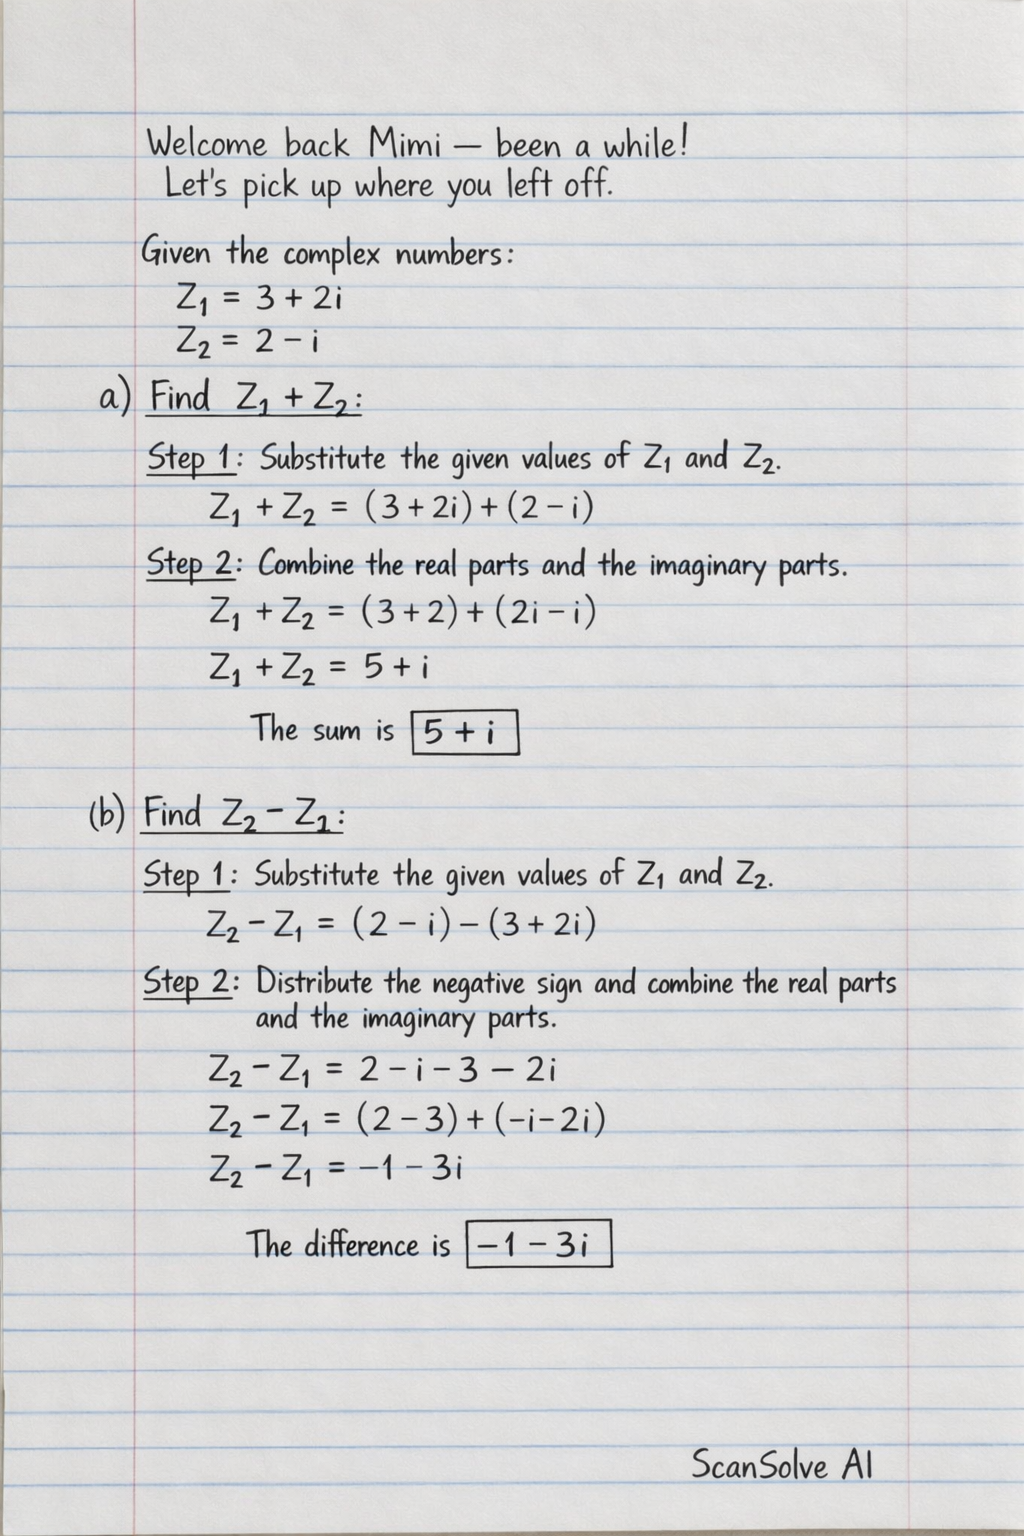 Welcome back Mimi — been a while!
Let's pick up where you left off.
Given the complex numbers:
Z₁ = 3 + 2i
Z₂ = 2 - i
a) Find Z₁ + Z₂:
Step 1: Substitute the given values of Z₁ and Z₂.
Z₁ + Z₂ = (3 + 2i) + (2 - i)
Step 2: Combine the real parts and the imaginary parts.
Z₁ + Z₂ = (3 + 2) + (2i - i)
Z₁ + Z₂ = 5 + i
The sum is 5 + i
(b) Find Z₂ - Z₁:
Step 1: Substitute the given values of Z₁ and Z₂.
Z₂ - Z₁ = (2 - i) - (3 + 2i)
Step 2: Distribute the negative sign and combine the real parts
and the imaginary parts.
Z₂ - Z₁ = 2 - i - 3 - 2i
Z₂ - Z₁ = (2 - 3) + (-i - 2i)
Z₂ - Z₁ = -1 - 3i
The difference is -1 - 3i
ScanSolve AI